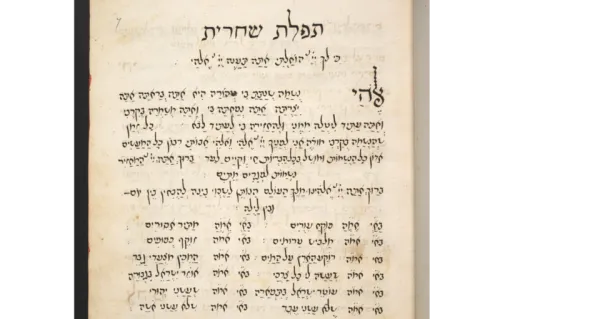 תפלת שחרית
כי לך יי הוחלתי אתה תענה יי אלהי
אלהי נשמה שנתת בי טהורה היא אתה בראתה אתה
יצרתה אתה נפחתה בי ואתה משמרה בקרבי
ואתה עתיד ליטלה ממני ולהחזירה בי לעתיד לבא כל זמן
שהנשמה בקרבי מודה אני לפניך יי אלהי ואלהי אבותי רבון כל המעשים
אדון כל הנשמות ומושל בכל הבריות חי וקיים לעד ברוך אתה יי המחזיר
נשמות לפגרים מתים
ברוך אתה יי אלהינו מלך העולם הנותן לשכוי בינה להבחין בין יום
ובין לילה
בא״י אמ״ה פוקח עורים : בא״י אמ״ה מתיר אסורים
בא״י אמ״ה מלביש ערומים : בא״י אמ״ה זוקף כפופים
בא״י אמ״ה רוקע הארץ על המים : בא״י אמ״ה המכין מצעדי גבר
בא״י אמ״ה שעשה לי כל צרכי : בא״י אמ״ה אוזר ישראל בגבורה
בא״י אמ״ה עוטר ישראל בתפארה בא״י אמ״ה שעשני יהודי
בא״י אמ״ה שלא עשני עבד : בא״י אמ״ה שלא עשני אשה